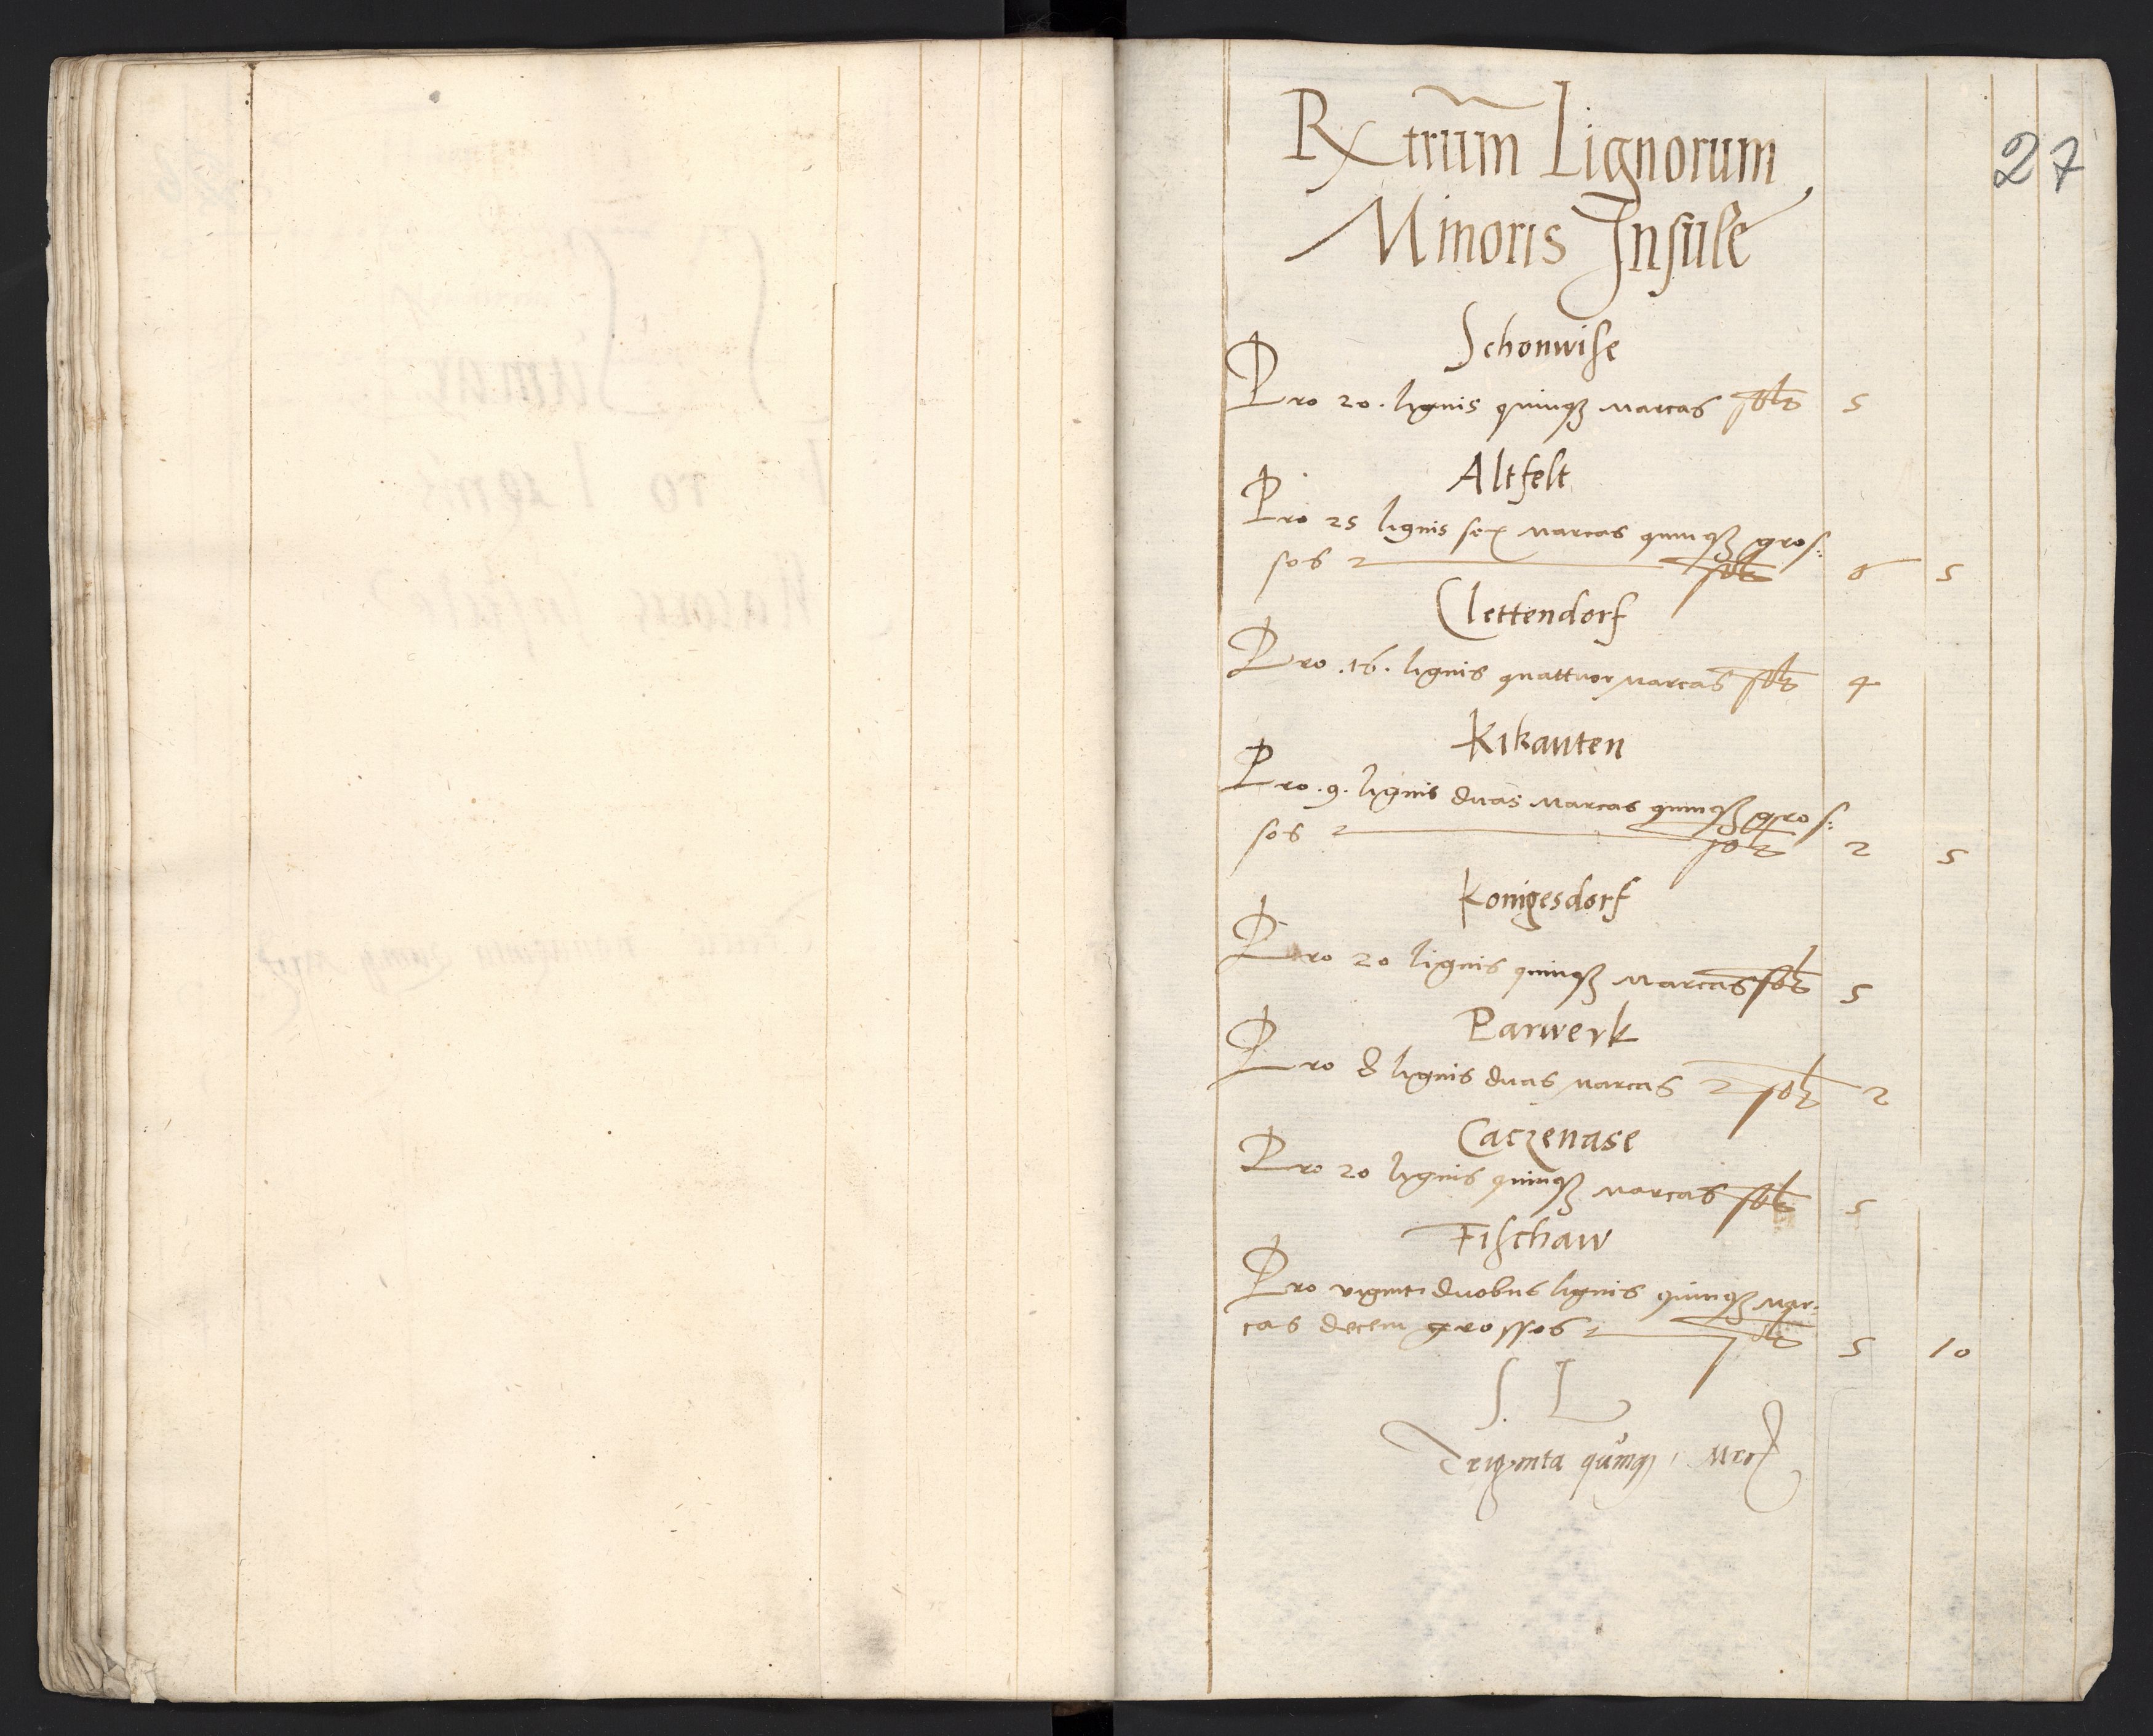 27
Rxtrum̃ Lignorum
Minoris Insule
Schonwise
Pro 20. lignis quinqꝫ marcas 5
Altfelt
Pro 25 lignis sex marcas quinqꝫ gros:
sos 6 5
Clettendorf
Pro .16. lignis quattuor marcas 4
Kikauten
Pro .9. lignis duas marcas quinqꝫ gros:
sos 2 5
Konigesdorf
Pro 20 lignis quinqꝫ marcas 5
Parwerk
Pro 8 lignis duas marcas 2
Caczenase
Pro 20 lignis quinqꝫ marcas 5
Fischaw
Pro viginti duobus lignis quinqꝫ mar:
cas decem grossos 5 10
S. L
Triginta quinqꝫ mrc